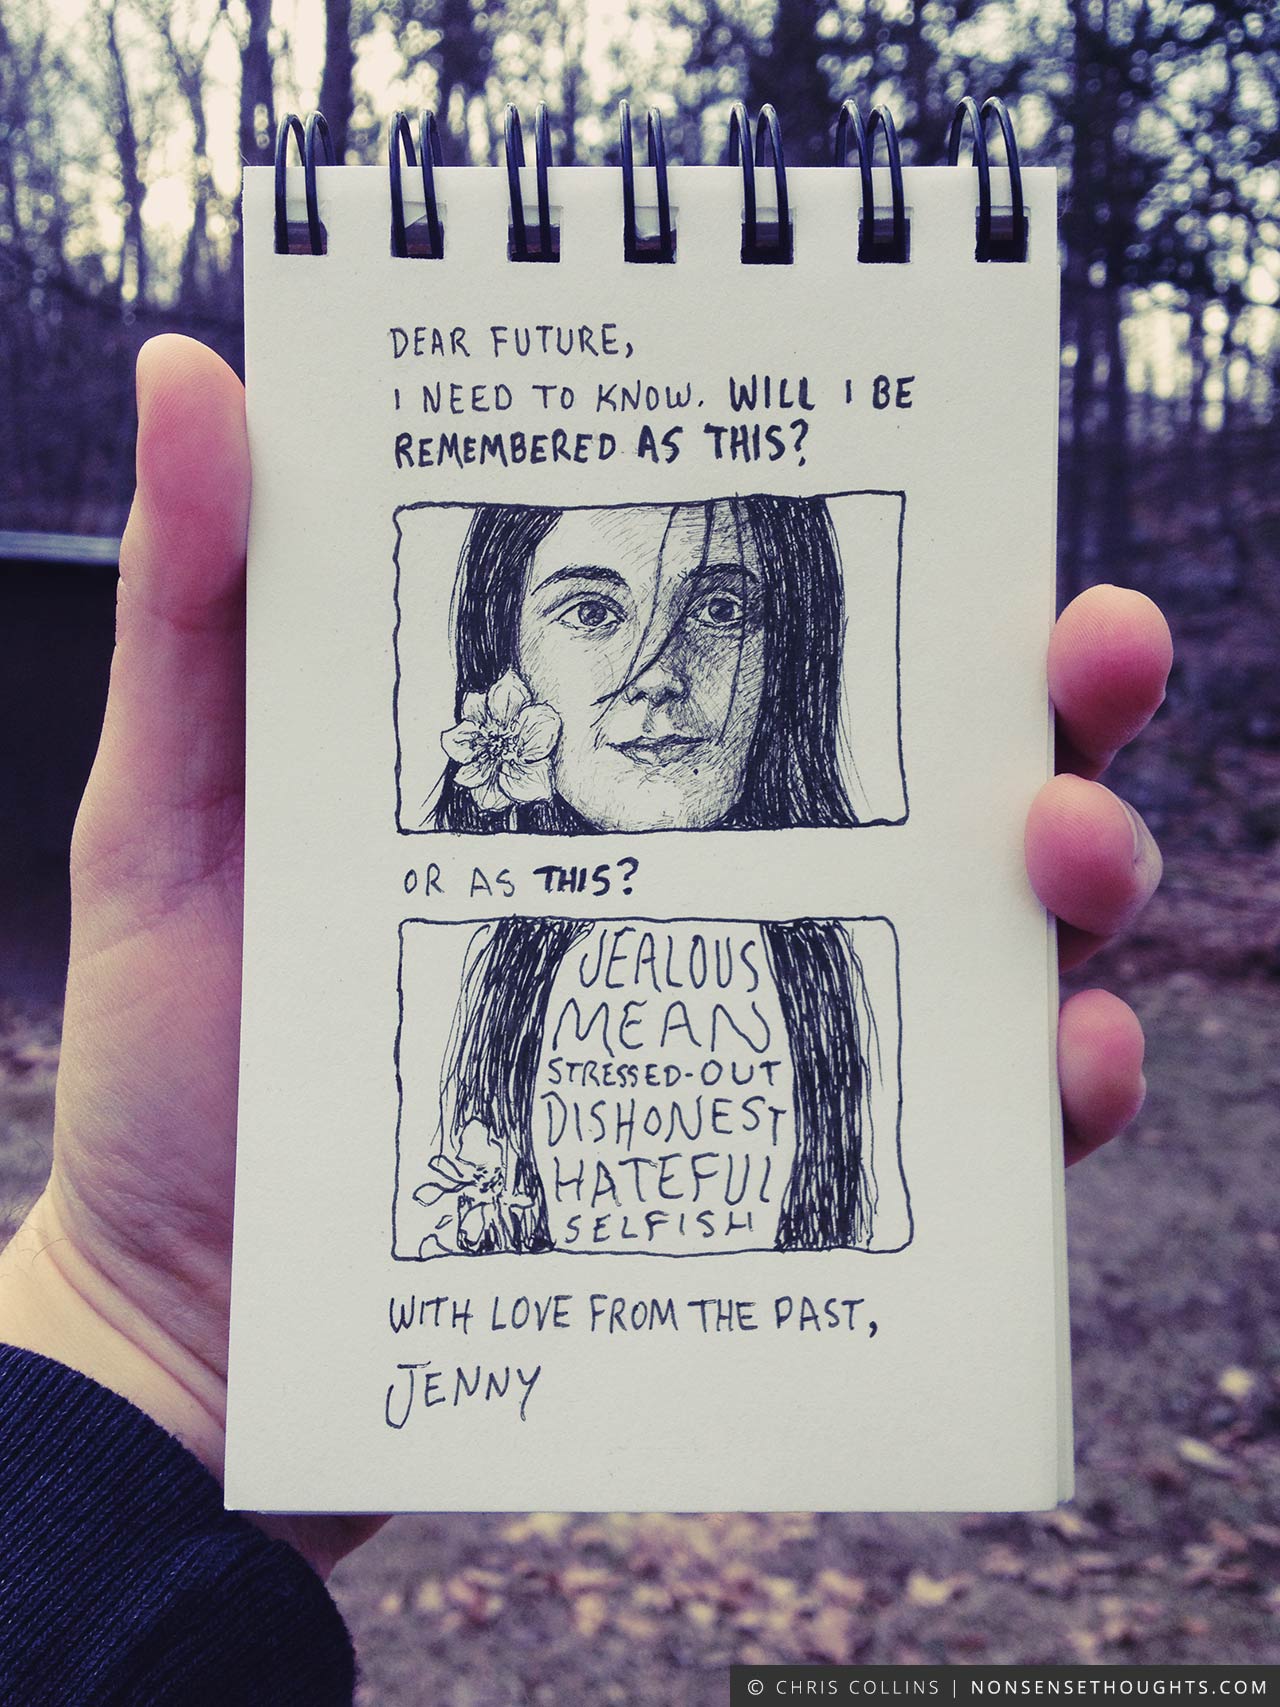 DEAR FUTURE,
I NEED TO KNOW. WILL I BE
REMEMBERED AS THIS?
OR AS THIS?
JEALOUS
MEAN
STRESSED-OUT
DISHONEST
HATEFUL
SELFISH
WITH LOVE FROM THE PAST,
JENNY
© CHRIS COLLINS | NONSENSETHOUGHTS.COM